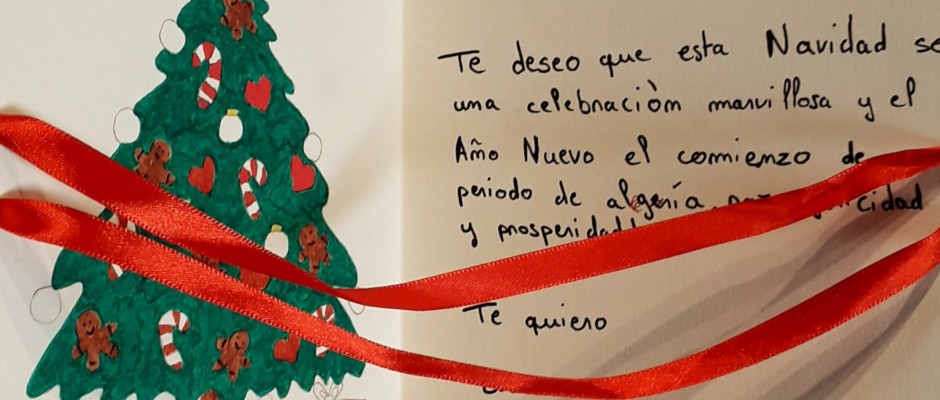 Te deseo que esta Navidad se
una celebración marvillosa y el
Año Nuevo el comienzo de
periodo de algería
y prosperidad!
Te quiero